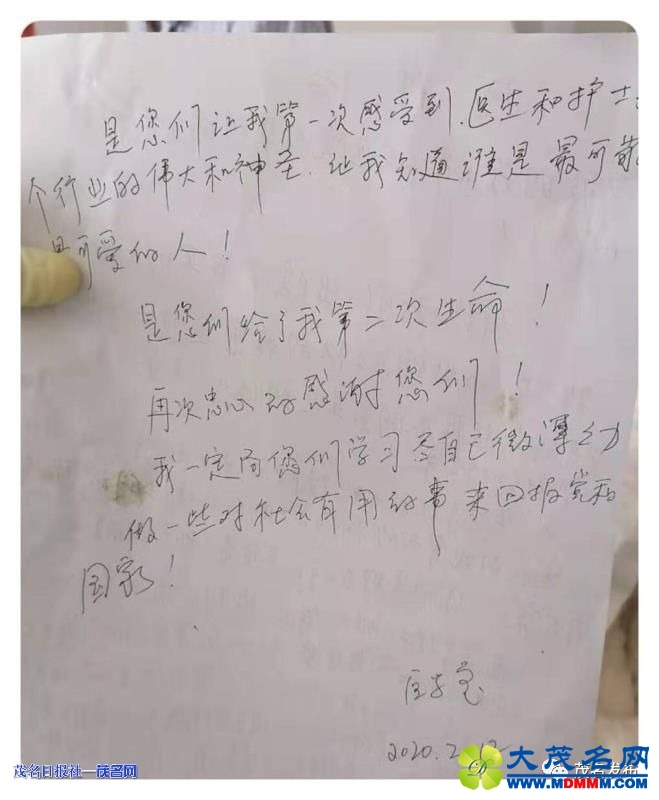 是您们让我第一次感受到.医生和护士这
个行业的伟大和神圣.让我知道谁是最可靠
最可爱的人!
是您们给了我第二次生命!
再次忠心的感谢您们!
我一定向您们学习尽自己微薄之力
做一些对社会有用的事来回报党和
国家!
2020.2.12
茂名日报社—茂名网
茂名发布
大茂名网
WWW.MDMMM.COM